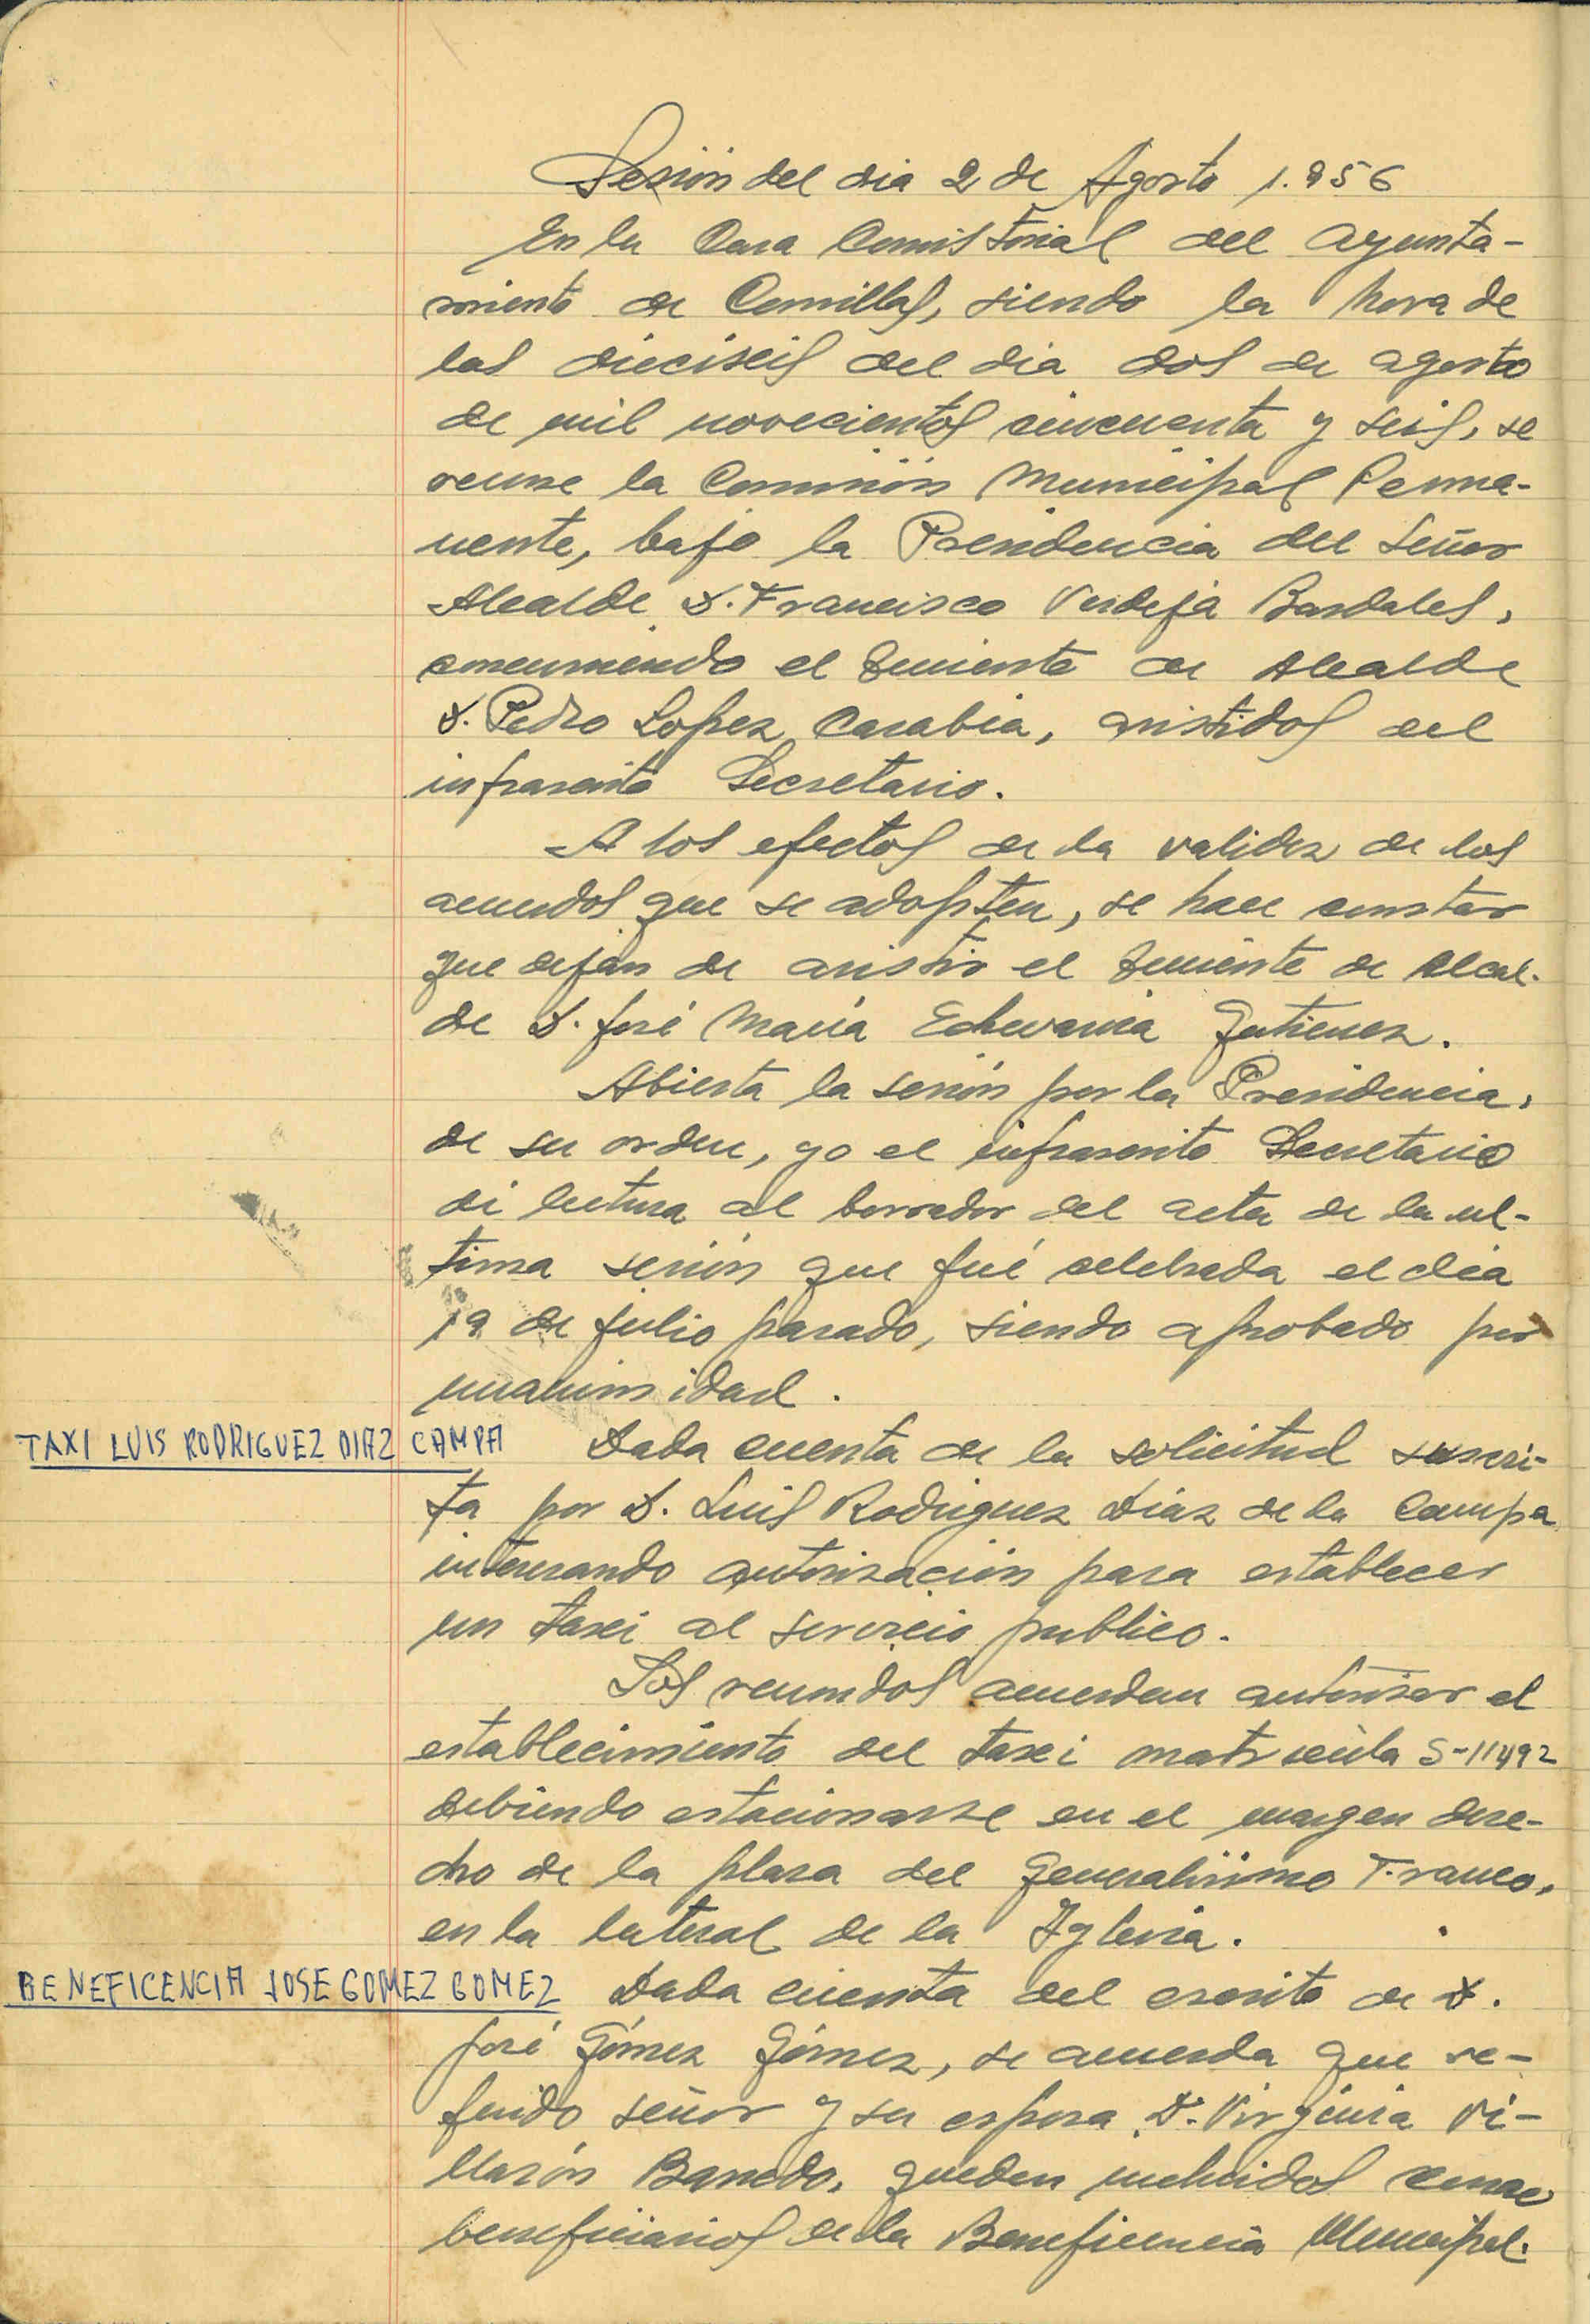 Sesión del dia 2 de Agosto 1.956
En la Casa Consistorial del Ayunta-
miento de Comillas, siendo la hora de
las dieciseis del dia dos de agosto
de mil novecientos cincuenta y seis, se
reune la Comisión Municipal Perma-
nente, bajo la Presidencia del Señor
Alcalde D. Francisco Verdeja Bardales,
concurriendo el Teniente de Alcalde
D. Pedro Lopez Carabia, asistidos del
infrascrito Secretario.
A los efectos de la validez de los
acuerdos que se adopten, se hace constar
que dejan de asistir el Teniente de Alcal-
de D. José María Echevarria Gutierrez.
Abierta la sesión por la Presidencia,
de su orden, yo el infrascrito Secretario
di lectura al borrador del acta de la ul-
tima sesión que fué celebrada el dia
19 de julio pasado, siendo aprobado por
unanimidad.
TAXI LUIS RODRIGUEZ DIAZ CAMPA
Dada cuenta de la solicitud suscri-
ta por D. Luis Rodriguez Diaz de la Campa
interesando autorización para establecer
un taxi al servicio publico.
Los reunidos acuerdan autorizar el
establecimiento del taxi matricula S-11492
debiendo estacionarse en el margen dere-
cho de la plaza del Generalisimo Franco,
en la lateral de la Iglesia.
BENEFICENCIA JOSE GOMEZ GOMEZ
Dada cuenta del escrito de D.
José Gómez Gómez, se acuerda que re-
ferido señor y su esposa Dª. Virginia Vi-
llasón Barredo, queden incluidos como
beneficiarios de la Beneficencia Municipal.